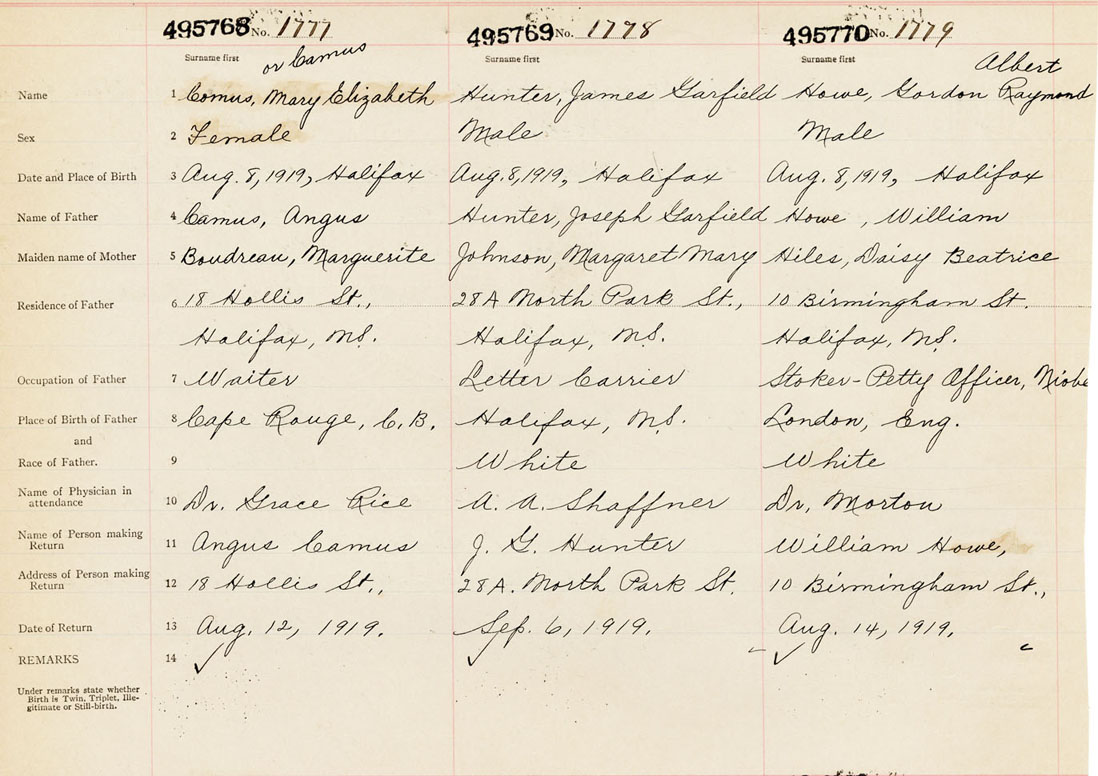 495768 No. 1777 495769 No. 1778 495770 No. 1779
Surname first or Camus Surname first Surname first Albert
Name 1 Comus, Mary Elizabeth Hunter, James Garfield Howe, Gordon Raymond
Sex 2 Female Male Male
Date and Place of Birth 3 Aug. 8, 1919, Halifax Aug. 8, 1919, Halifax Aug. 8, 1919, Halifax
Name of Father 4 Camus, Angus Hunter, Joseph Garfield Howe, William
Maiden name of Mother 5 Boudreau, Marguerite Johnson, Margaret Mary Hiles, Daisy Beatrice
Residence of Father 6 18 Hollis St., 28A North Park St., 10 Birmingham St.
Halifax, N.S. Halifax, N.S. Halifax, N.S.
Occupation of Father 7 Waiter Letter Carrier Stoker-Petty Officer, Niobe
Place of Birth of Father 8 Cape Rouge, C.B. Halifax, N.S. London, Eng.
and
Race of Father. 9 White White
Name of Physician in
attendance 10 Dr. Grace Rice A. A. Shaffner Dr. Morton
Name of Person making
Return 11 Angus Camus J. G. Hunter William Howe,
Address of Person making
Return 12 18 Hollis St., 28A. North Park St. 10 Birmingham St.,
Date of Return 13 Aug. 12, 1919. Sep. 6, 1919. Aug. 14, 1919.
REMARKS 14 ✓ ✓ ✓
Under remarks state whether
Birth is Twin, Triplet, Ille-
gitimate or Still-birth.